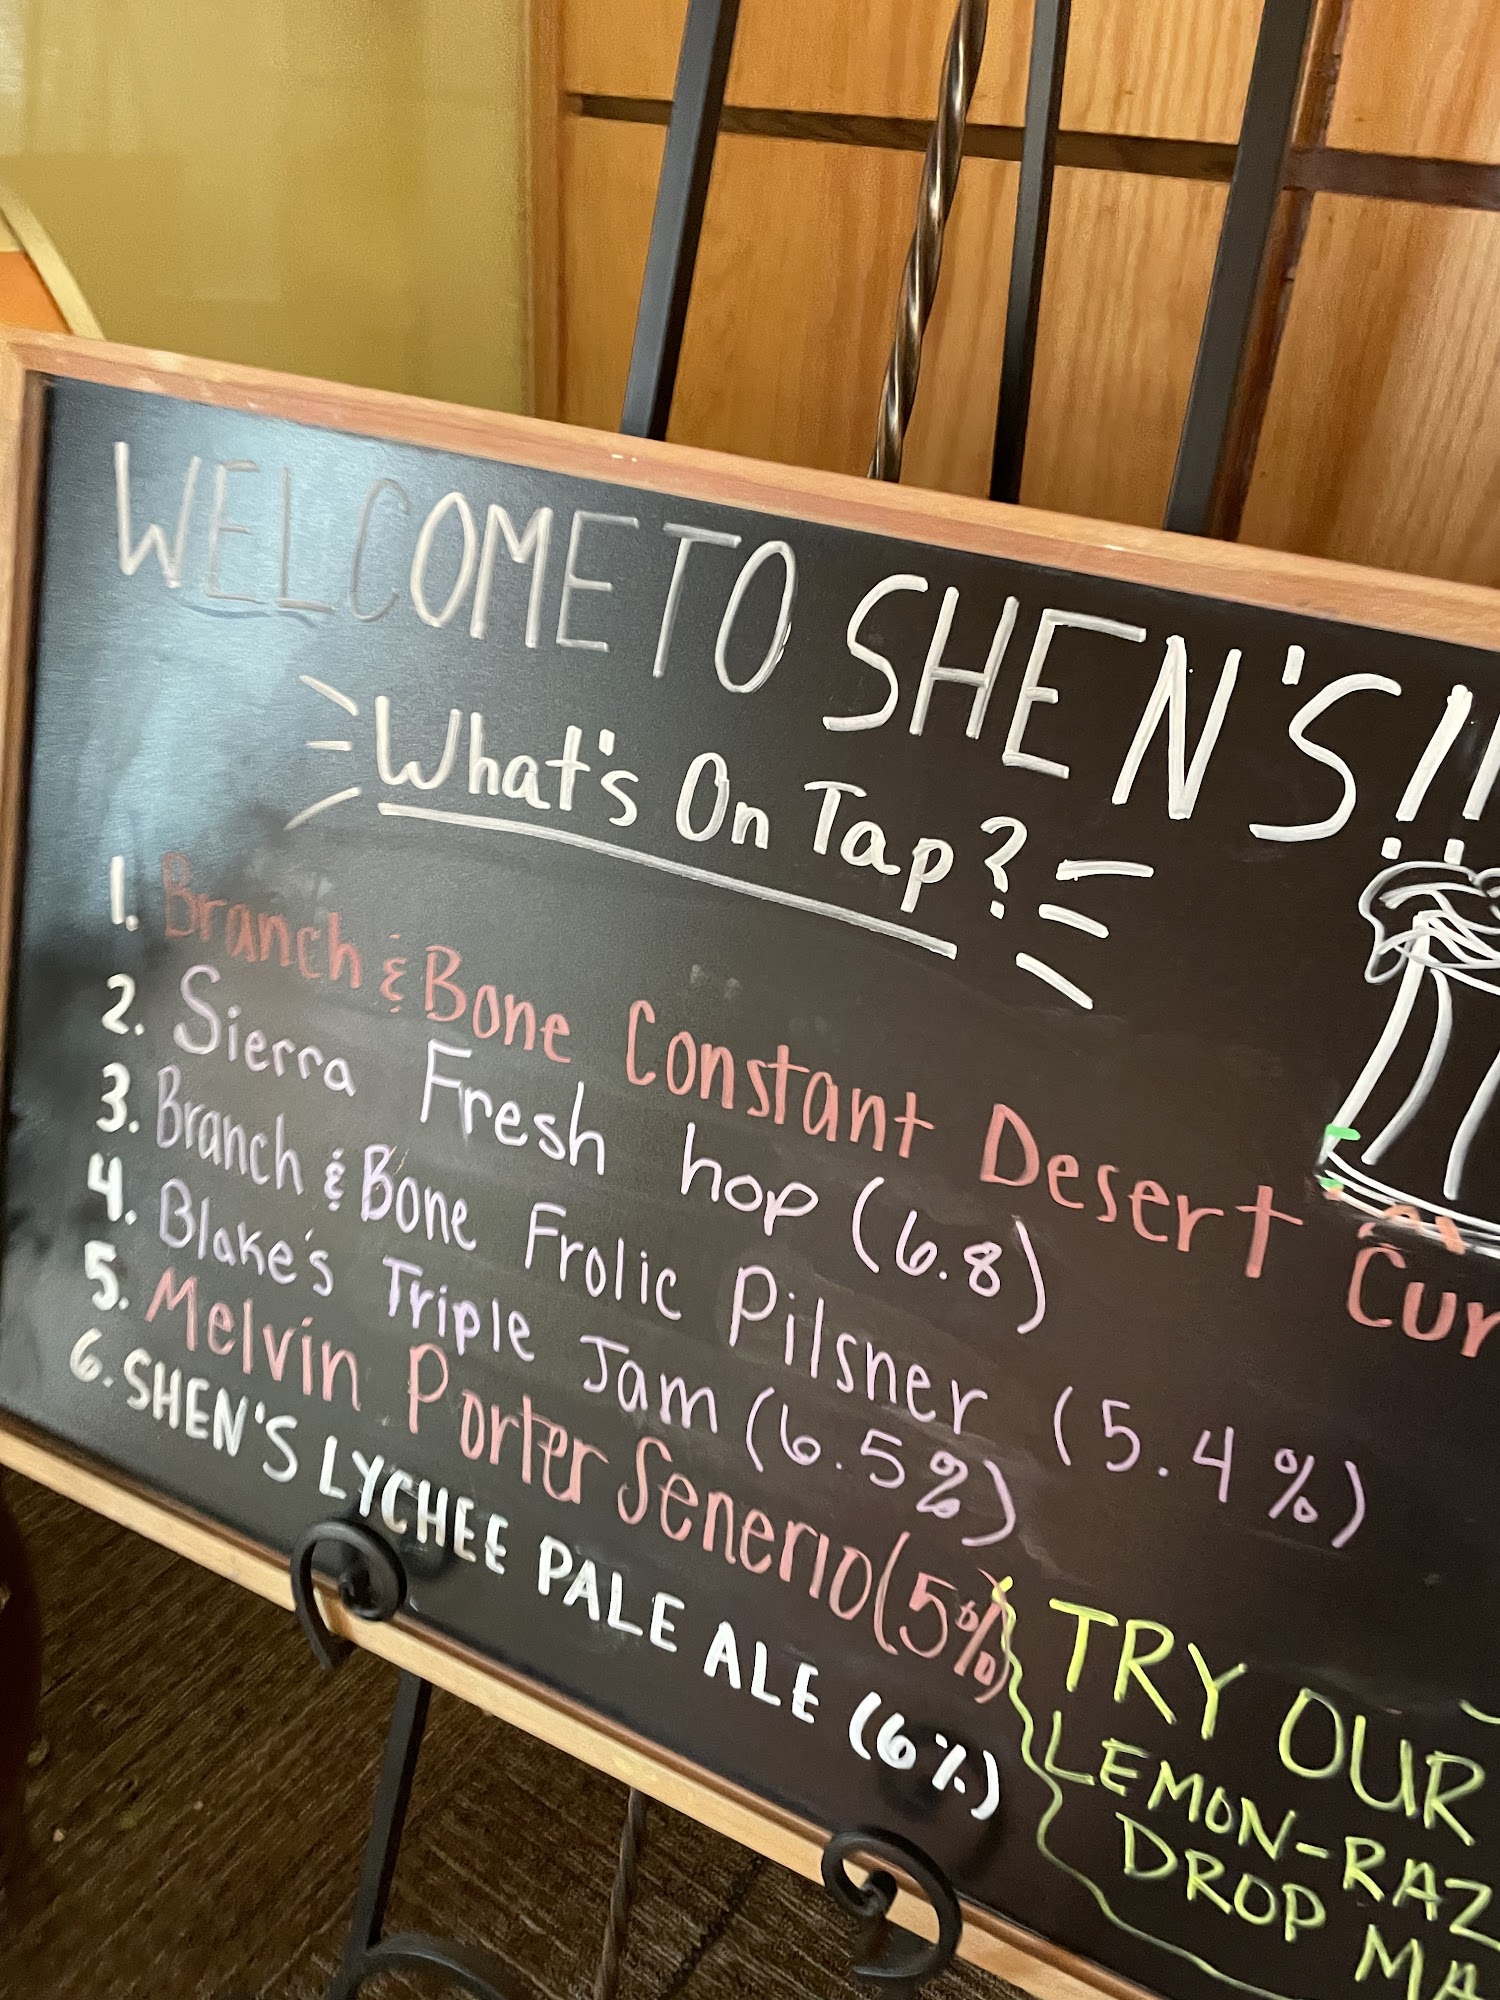 WELCOME TO SHEN'S!!
What's On Tap?
1. Branch & Bone Constant Desert Cur
2. Sierra Fresh hop (6.8)
3. Branch & Bone Frolic Pilsner (5.4%)
4. Blake's Triple Jam (6.5%)
5. Melvin Porter Senerio (5%)
6. SHEN'S LYCHEE PALE ALE (6%)
TRY OUR
LEMON-RAZ
DROP
MA